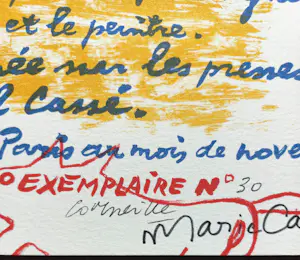 et le peintre.
ée sur les presses
l Cassé.
Paris au mois de nove
EXEMPLAIRE N° 30
Corneille
Maric Ca